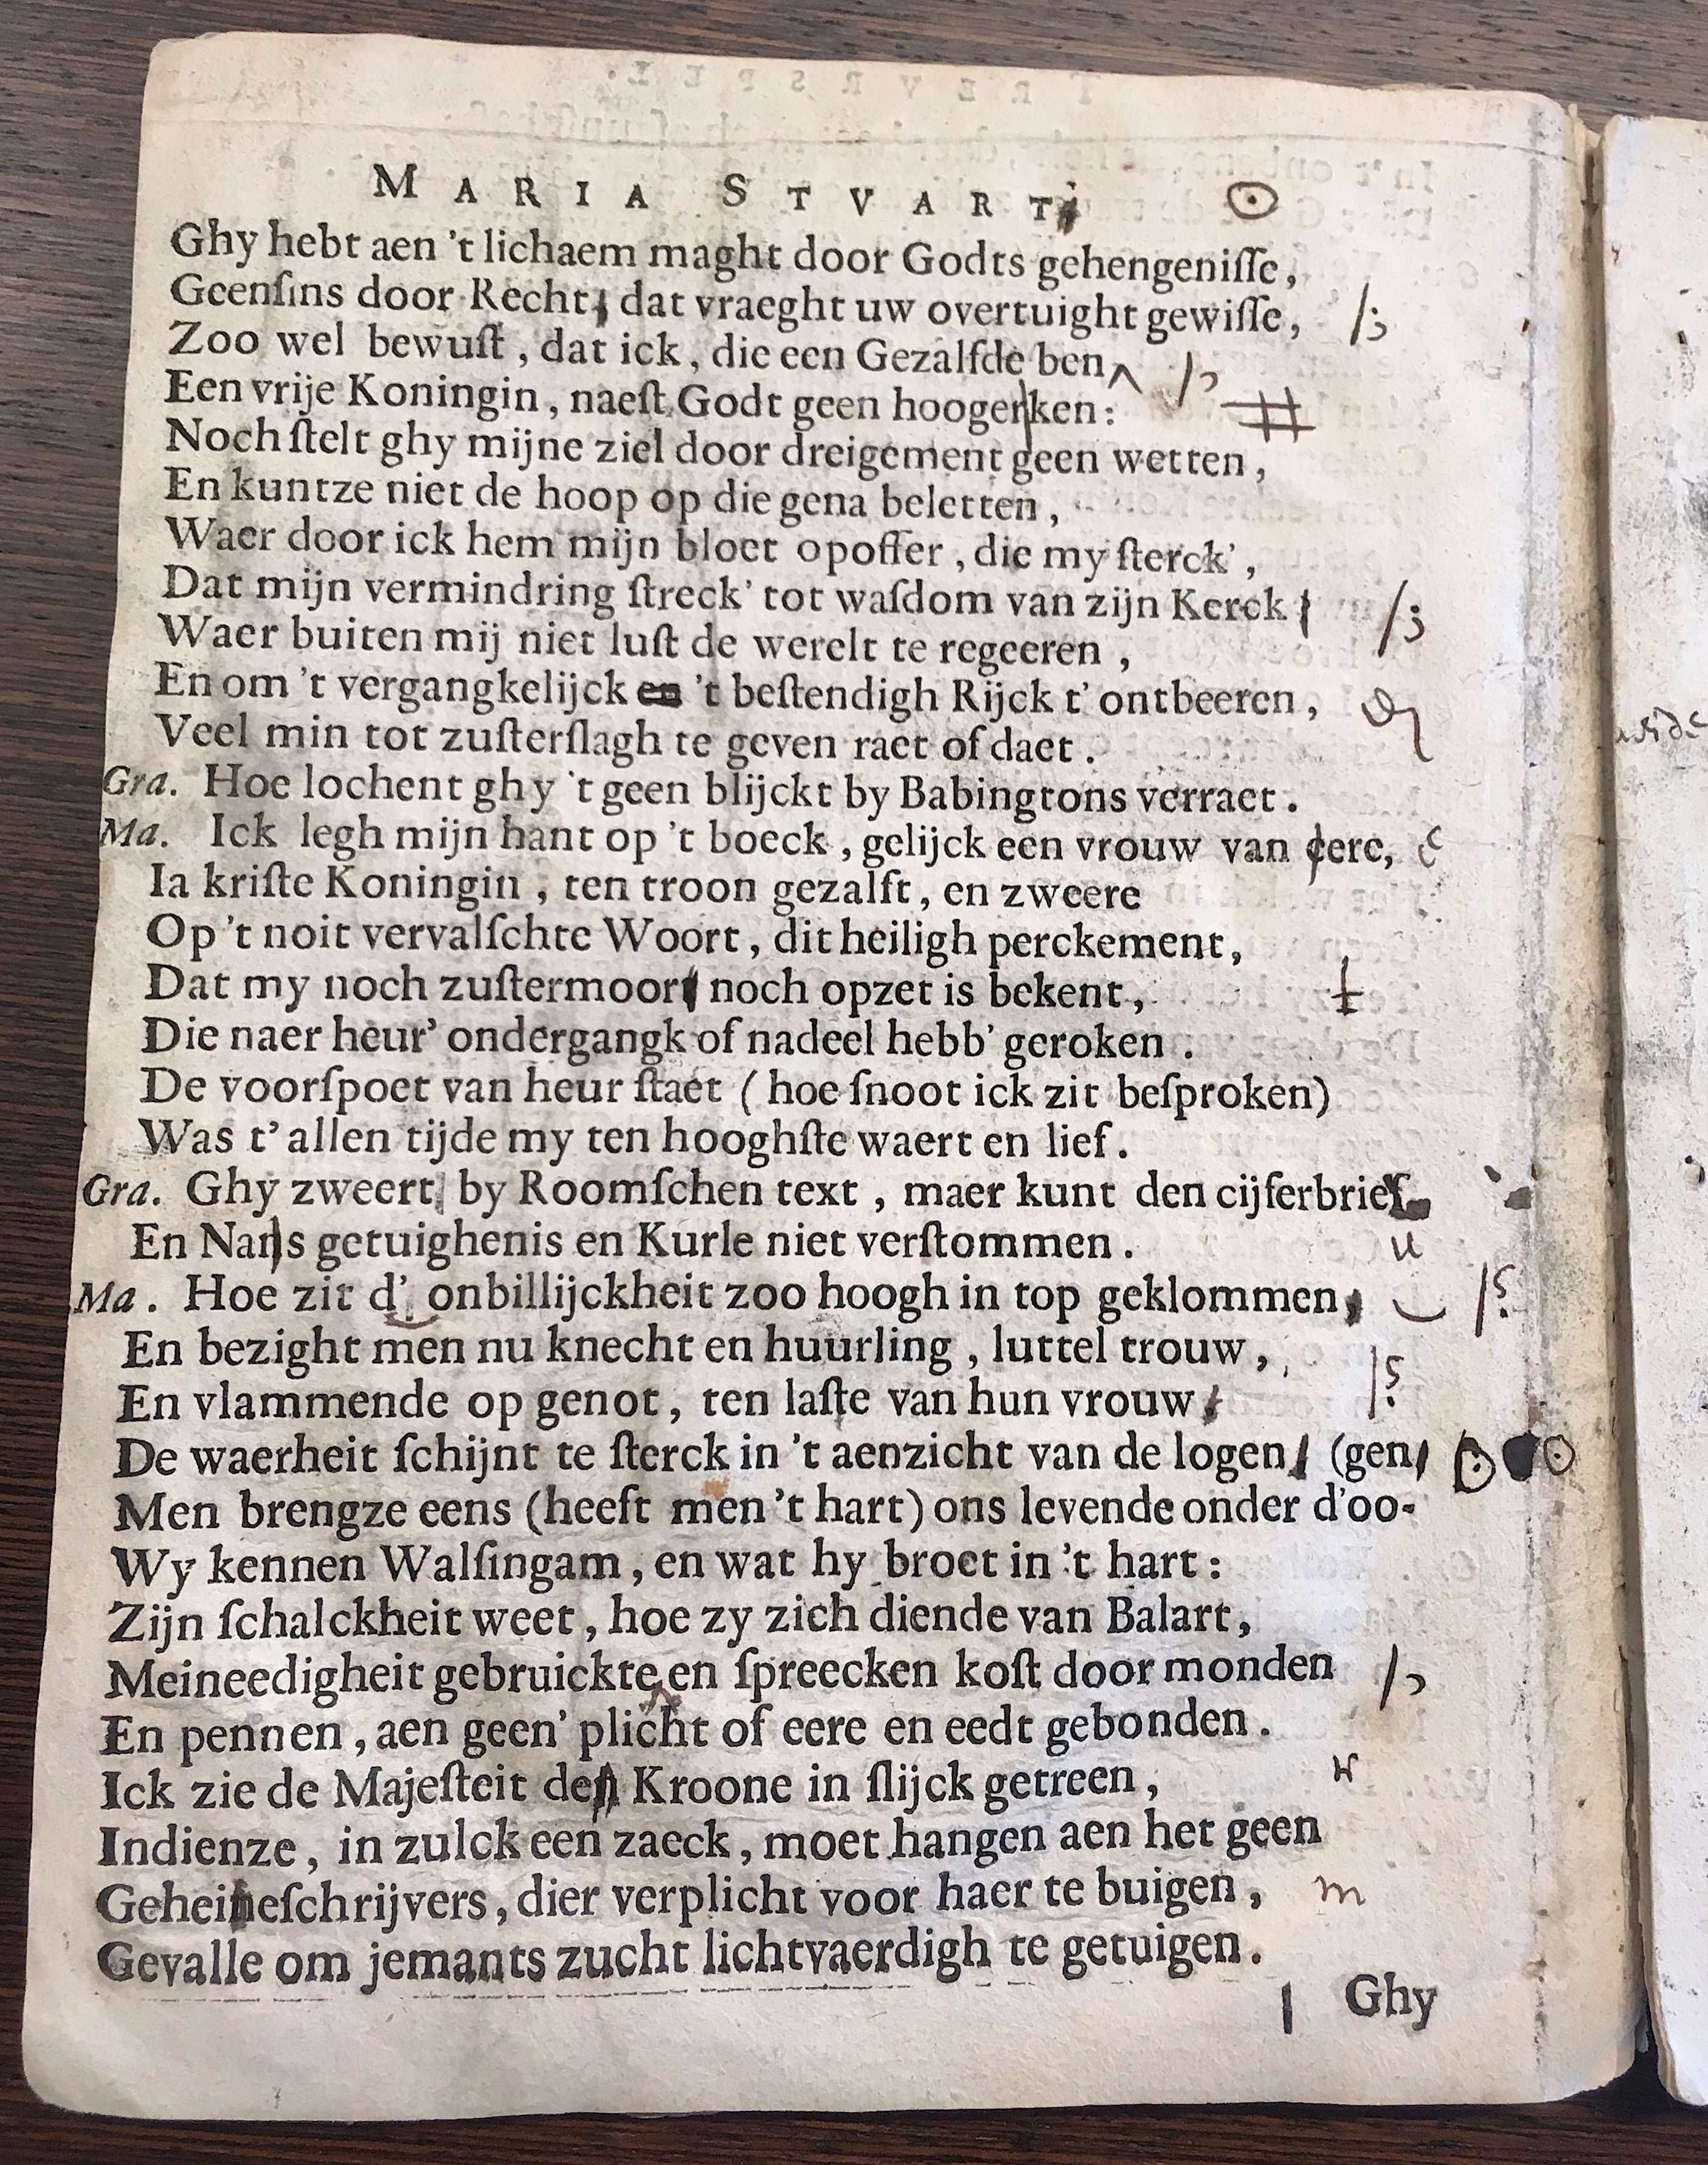 MARIA STVART
Ghy hebt aen 't lichaem maght door Godts gehengenisse,
Geenſins door Recht, dat vraeght uw overtuight gewiſſe, /;
Zoo wel bewuſt, dat ick, die een Gezalfde ben /,
Een vrije Koningin, naeſt Godt geen hooger ken: #
Noch ſtelt ghy mijne ziel door dreigement geen wetten,
En kuntze niet de hoop op die gena beletten,
Waer door ick hem mijn bloet opoffer, die my ſterck',
Dat mijn vermindring ſtreck' tot waſdom van zijn Kerck /;
Waer buiten mij niet luſt de werelt te regeeren,
En om 't vergangkelijck en 't beſtendigh Rijck t' ontbeeren,
Veel min tot zuſterſlagh te geven raet of daet.
Gra. Hoe lochent ghy 't geen blijckt by Babingtons verraet.
Ma. Ick legh mijn hant op 't boeck, gelijck een vrouw van eere, e
Ia kriſte Koningin, ten troon gezalft, en zweere
Op 't noit vervalſchte Woort, dit heiligh perckement,
Dat my noch zuſtermoor noch opzet is bekent, t
Die naer heur' ondergangk of nadeel hebb' geroken.
De voorſpoet van heur ſtaet (hoe ſnoot ick zit beſproken)
Was t' allen tijde my ten hooghſte waert en lief.
Gra. Ghy zweert by Roomſchen text, maer kunt den cijferbrief
En Nans getuighenis en Kurle niet verſtommen. u
Ma. Hoe zit d' onbillijckheit zoo hoogh in top geklommen, /?
En bezight men nu knecht en huurling, luttel trouw,
En vlammende op genot, ten laſte van hun vrouw /?
De waerheit ſchijnt te ſterck in 't aenzicht van de logen (gen,
Men brengze eens (heeft men 't hart) ons levende onder d'oo-
Wy kennen Walſingam, en wat hy broet in 't hart:
Zijn ſchalckheit weet, hoe zy zich diende van Balart,
Meineedigheit gebruickte en ſpreecken koſt door monden /,
En pennen, aen geen' plicht of eere en eedt gebonden.
Ick zie de Majeſteit den Kroone in ſlijck getreen, r
Indienze, in zulck een zaeck, moet hangen aen het geen
Geheineſchrijvers, dier verplicht voor haer te buigen, m
Gevalle om jemants zucht lichtvaerdigh te getuigen.
Ghy